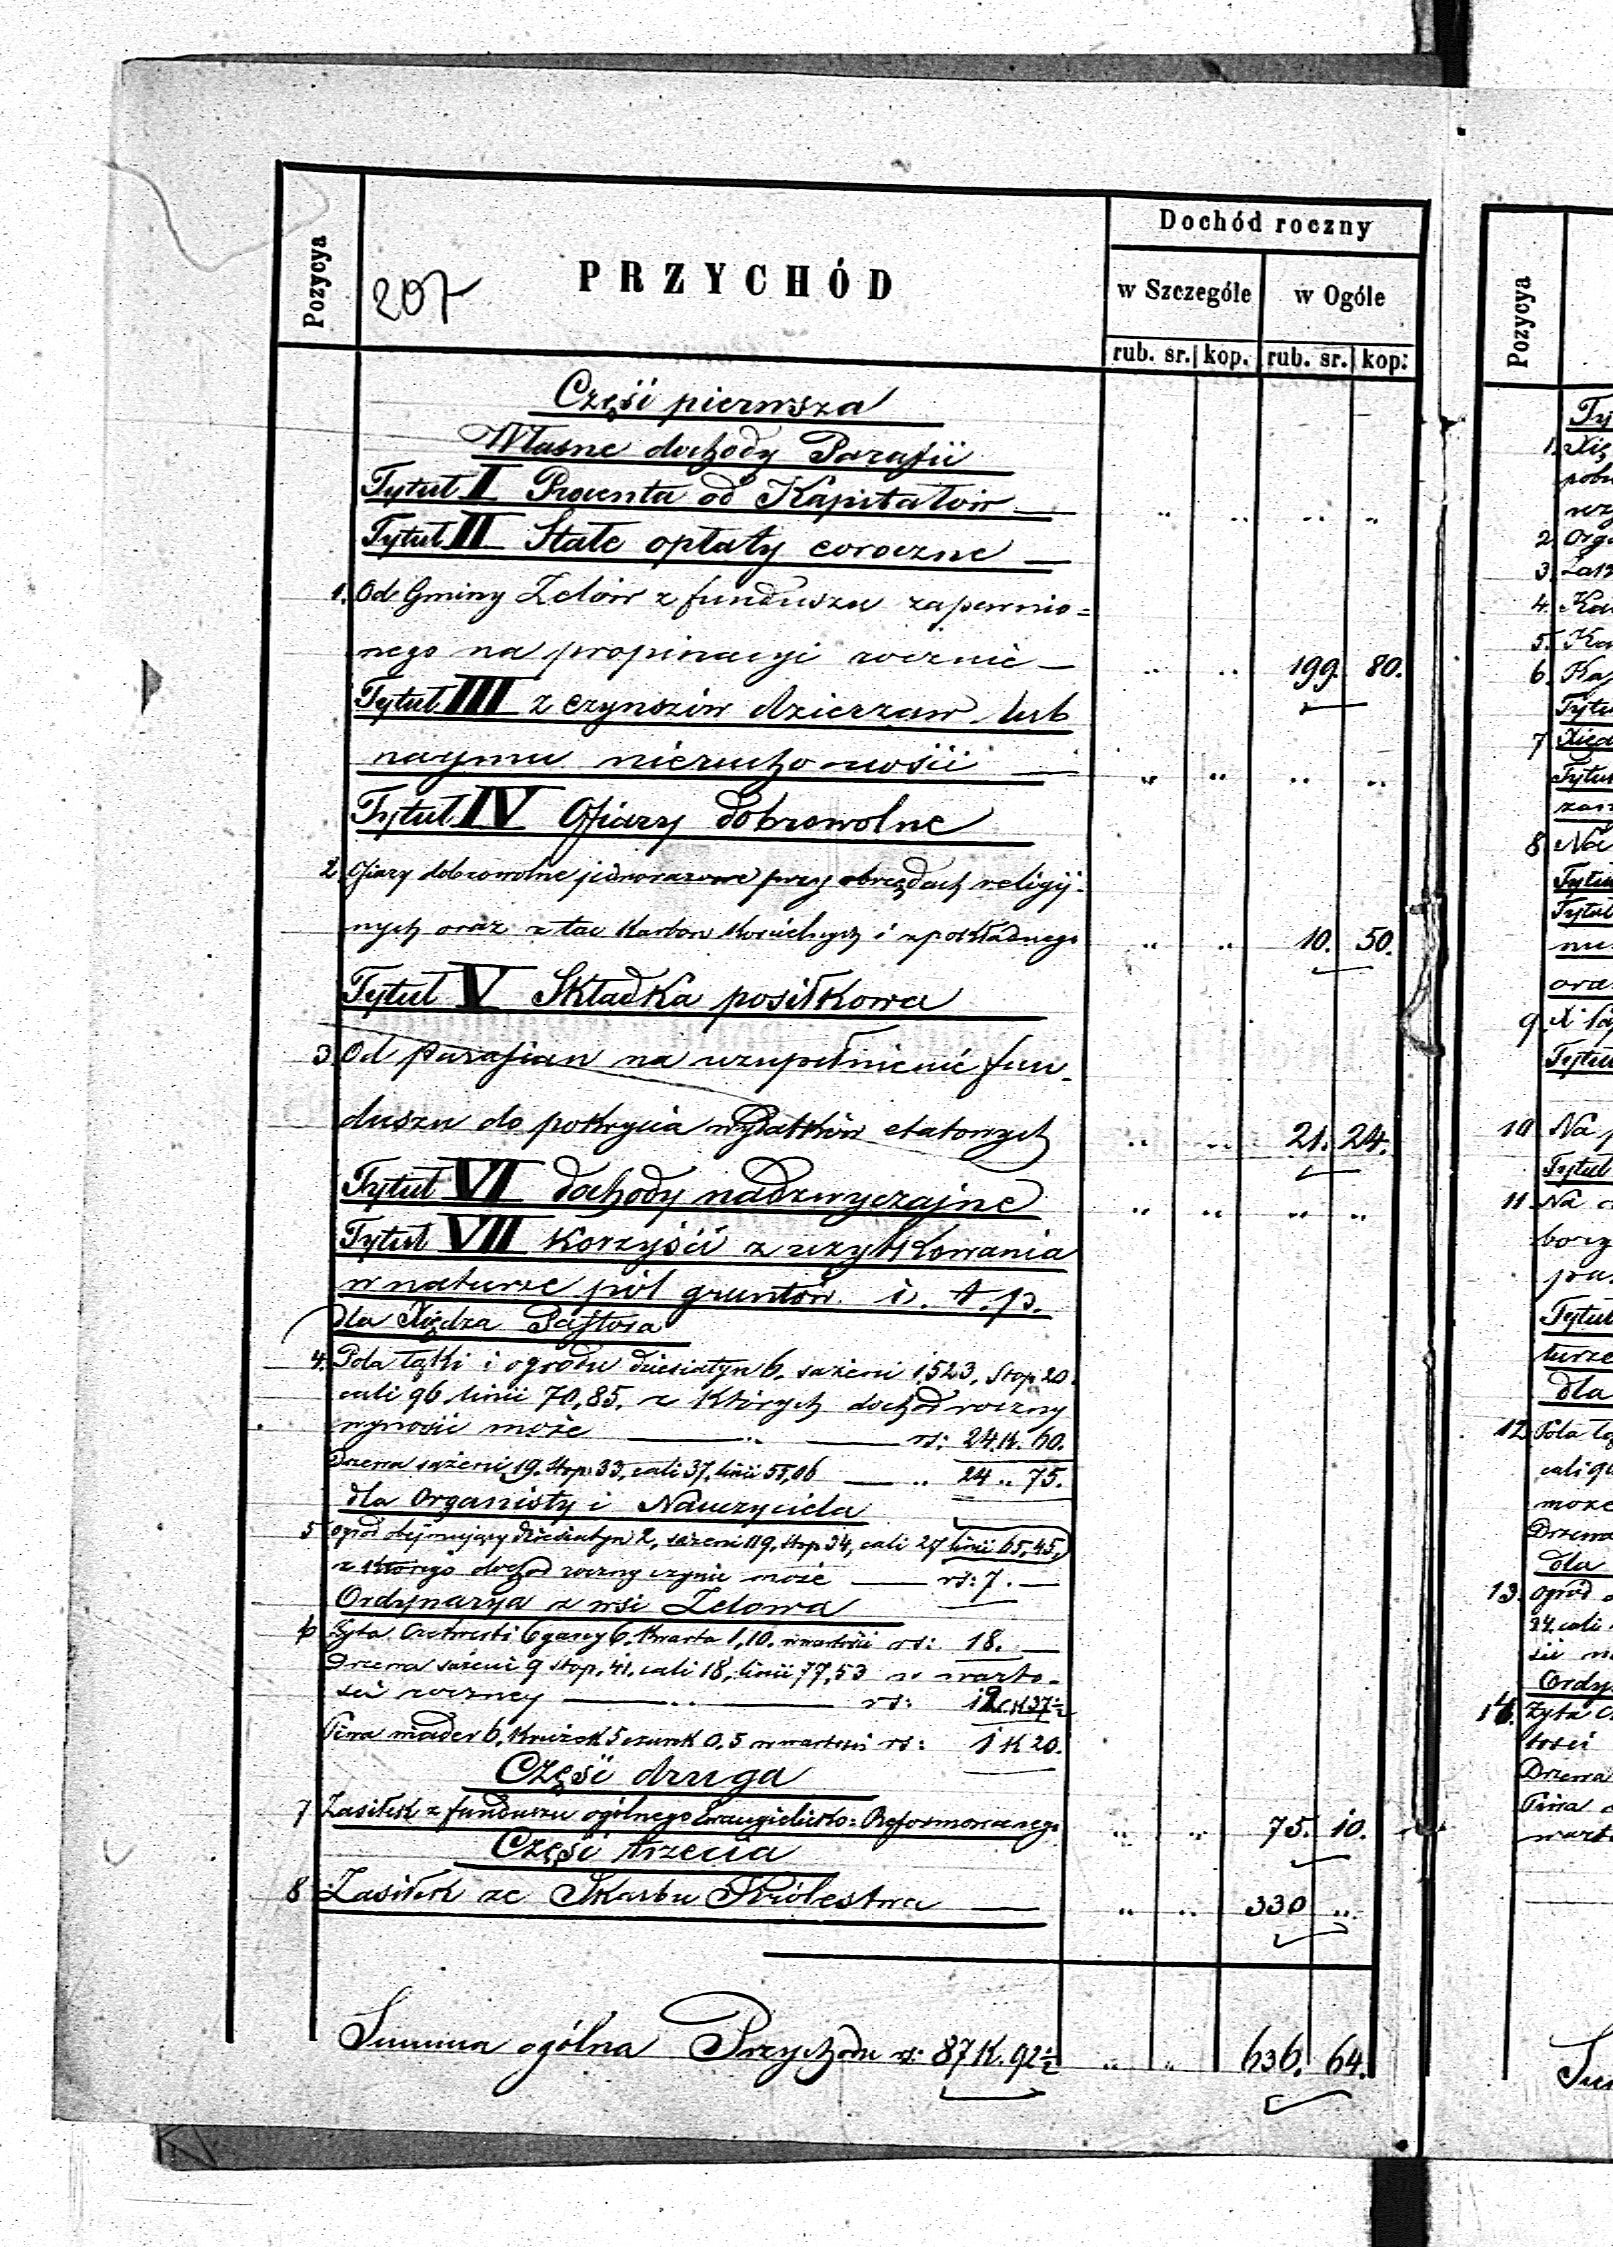 Pozycya
207
PRZYCHÓD
Dochód roczny
w Szczególe
w Ogóle
rub. sr. kop. rub. sr. kop:
Część pierwsza
Własne dochody Parafii
Tytuł I Procenta od Kapitałów — .. .. .. ..
Tytuł II Stałe opłaty coroczne —
1. Od Gminy Zelów z funduszu zapewnio=
nego na propinacyi rocznie — .. .. 199. 80.
Tytuł III z czynszów dzierzaw lub
najmu nieruchomości — .. .. .. ..
Tytuł IV Ofiary dobrowolne
2. Ofiary dobrowolne jednorazowe przy obrzędach religij-
nych oraz z tac Karbon Kościelnych i z pokładnego .. .. 10. 50.
Tytuł V Składka posiłkowa
3. Od Parafian na uzupełnienie fun-
duszu do pokrycia wydatków etatowych .. .. 21. 24.
Tytuł VI dochody nadzwyczajne .. .. .. ..
Tytuł VII Korzyści z użytkowania
w naturze pól gruntów i. t. p.
dla Xiędza Pastora
4. Pola łąki i ogrodu dziesiatyn 6, sażeni 1523, stop 20.
cali 96 linii 70,85. z których dochód roczny
wynosić może — .. — rs: 24 K. 60.
Drzewa sążeni 19. stop 33, cali 37, linii 55,06 — .. 24 .. 75.
dla Organisty i Nauczyciela
5 Ogród obejmujący dziesiatyn 2, sażeni 119, stop 34, cali 27 linii 65,45,
z którego dochód roczny czynić może — rs: 7. —
Ordynarya z wsi Zelowa
6 Żyta Czetwerti 6 garcy 6, kwarta 1,10. wartości rs: 18. —
Drzewa sażeni 9 stop. 41. cali 18, linii 77,53 w warto-
ści roczney — .. — rs: 12 K 37½
Piwa wiader 6, Krużek 5 czarek 0,5 w wartości rs: 1 K 20.
Część druga
7 Zasiłek z funduszu ogólnego Ewangielicko=Reformowanego .. .. 75. 10.
Część trzecia
8 Zasiłek ze Skarbu Królestwa — .. .. 330 ..
Summa ogólna Przychodu rs: 87 K. 92½ .. .. 636. 64.
Pozycya
1.
2
3.
4.
5.
6.
7
8
9.
10
11
12
13.
14.